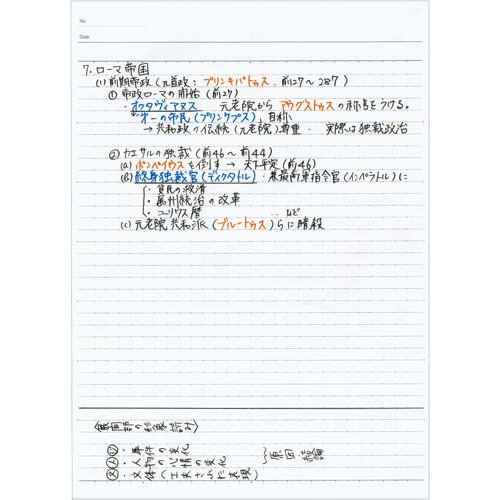 No.
Date
7. ローマ帝国
(1) 前期帝政(元首政:プリンキパトゥス. 前27〜287)
① 帝政ローマの開始(前27)
・オクタヴィアヌス 元老院からアウグストゥスの称号をうける。
第一の市民(プリンケプス)自称
→ 共和政の伝統(元老院)尊重・ 実際は独裁政治
② カエサルの独裁(前46〜前44)
(a) ポンペイウスを倒す → 天下平定(前46)
(B) 終身独裁官(ディクタトル)・兼最高軍指令官(インペラトル)に
・貧民の救済
・属州統治の改革
・ユリウス暦 … など
(c) 元老院共和派(ブルートゥス)らに暗殺
・事件の変化
・人物の心情の変化
・文体(工夫された表現)
原因 結論